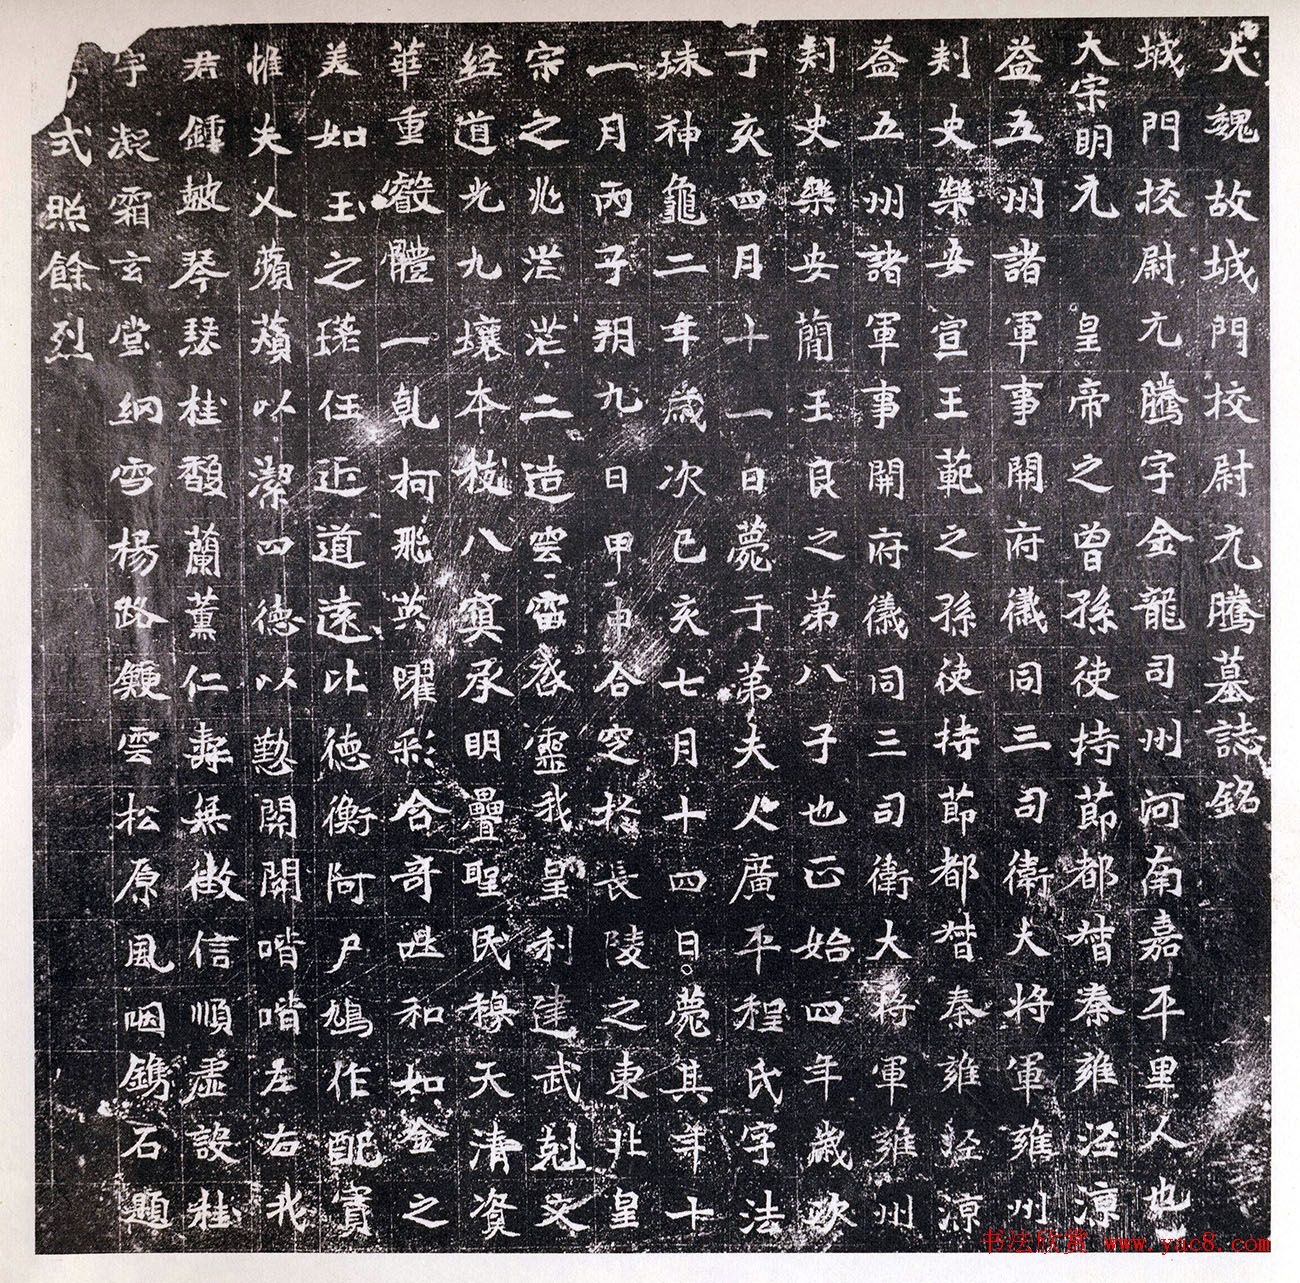 大魏故城門校尉元騰墓誌銘
城門校尉元騰字金龍司州河南嘉平里人也
大宗明元 皇帝之曾孫使持節都督秦雍涇涼
益五州諸軍事開府儀同三司衛大將軍雍州
刺史樂安宣王範之孫使持節都督秦雍涇涼
益五州諸軍事開府儀同三司衛大將軍雍州
刺史樂安簡王良之第八子也正始四年歲次
丁亥四月十一日薨于第夫人廣平程氏字法
珠神龜二年歲次己亥七月十四日薨其年十
一月丙子朔九日甲申合窆於長陵之東北皇
宗之兆茫茫二造雲雷啓靈我皇利建武剋文
經道光九壤本枝八冥承明疊聖民穆天清資
華重叡體一乹柯飛英曜彩含奇和如金之
美如玉之任近道遠比德衡阿尸鳩作配實
惟夫人蘋蘩以潔四德以懃關關喈喈左右我
君鍾鼓琴瑟桂馥蘭薰仁壽無徵信順虛設桂
宇凝霜玄堂納雪楊路雲松原風咽鐫石題
式照餘烈
书法欣赏 www.yac8.com